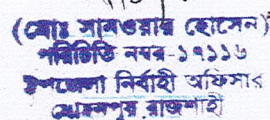 (মোঃ সানওয়ার হোসেন)
পরিচিতি নম্বর-১৭১১৬
উপজেলা নির্বাহী অফিসার
মোহনপুর, রাজশাহী